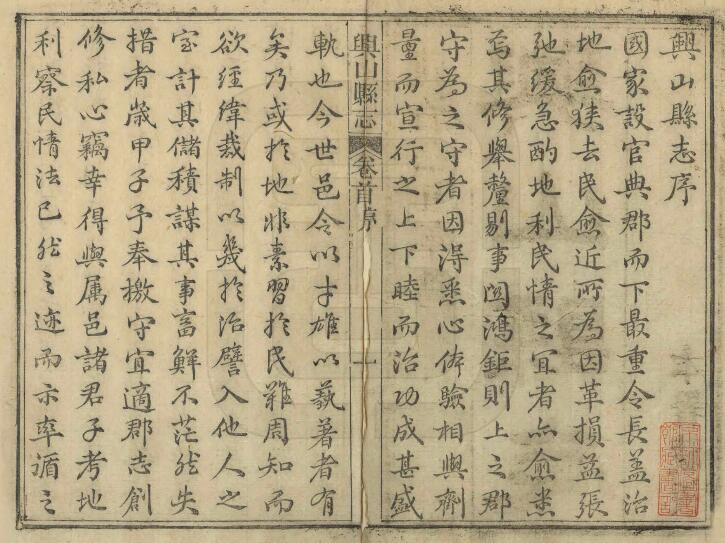 興山縣志序
國家設官典郡而下最重令長蓋治
地愈狹去民愈近所為因革損益張
弛緩急酌地利民情之宜者亦愈悉
焉其修舉釐剔事關鴻鉅則上之郡
守為之守者因得悉心體驗相與劑
量而宣行之上下睦而治功成甚盛
興山縣志 卷首序 一
軌也今世邑令以才雄以蓺著者有
矣乃或於地非素習於民難周知而
欲經緯裁制以幾於治譬入他人之
室計其儲積謀其事畜鮮不茫然失
措者歲甲子予奉檄守宜適郡志創
修私心竊幸得與属邑諸君子考地
利察民情法已然之迹而示率循之